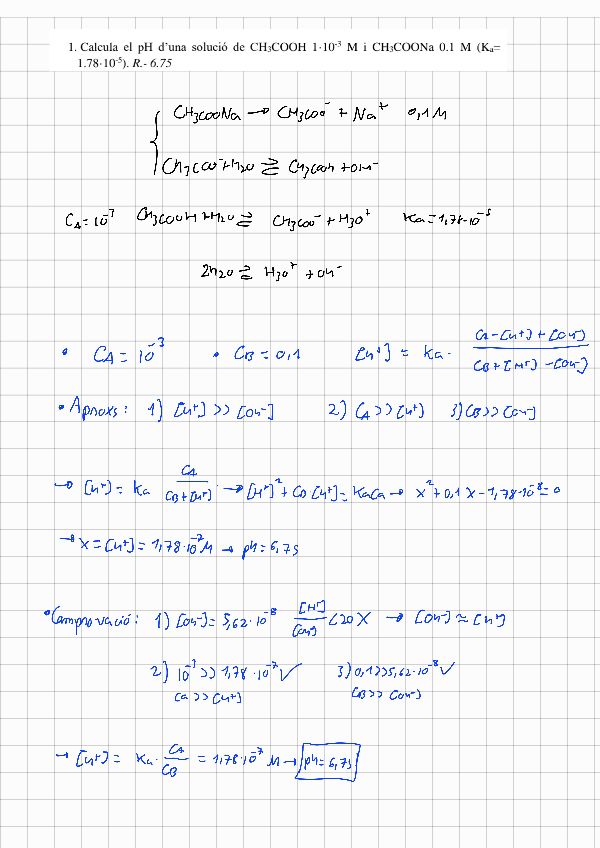 1. Calcula el pH d'una solució de CH₃COOH 1·10⁻³ M i CH₃COONa 0.1 M (Kₐ=
1.78·10⁻⁵). R.- 6.75
CH3COONa → CH3COO⁻ + Na⁺ 0,1 M
CH3COO⁻ + H2O ⇄ CH3COOH + OH⁻
CA = 10⁻³ CH3COOH + H2O ⇄ CH3COO⁻ + H3O⁺ Ka = 1,78·10⁻⁵
2H2O ⇄ H3O⁺ + OH⁻
• CA = 10⁻³ • CB = 0,1 [H⁺] = Ka · (Ca - [H⁺] + [OH⁻]) / (CB + [H⁺] - [OH⁻])
• Aproxs: 1) [H⁺] >> [OH⁻] 2) CA >> [H⁺] 3) CB >> [OH⁻]
→ [H⁺] = Ka CA / (CB + [H⁺]) → [H⁺]² + CB [H⁺] = KaCa → x² + 0,1 x - 1,78·10⁻⁸ = 0
→ x = [H⁺] = 1,78·10⁻⁷ M → pH = 6,75
• Comprovació: 1) [OH⁻] = 5,62·10⁻⁸ [H⁺] / [OH⁻] < 20 X → [OH⁻] ≈ [H⁺]
2) 10⁻³ >> 1,78·10⁻⁷ ✓ 3) 0,1 >> 5,62·10⁻⁸ ✓
Ca >> [H⁺] CB >> [OH⁻]
→ [H⁺] = Ka · CA / CB = 1,78·10⁻⁷ M → pH = 6,75